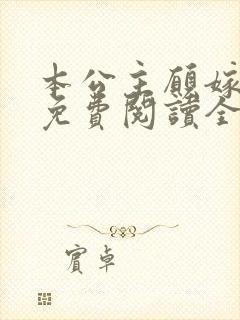 本公主願嫁
免費閱讀全
賓卓